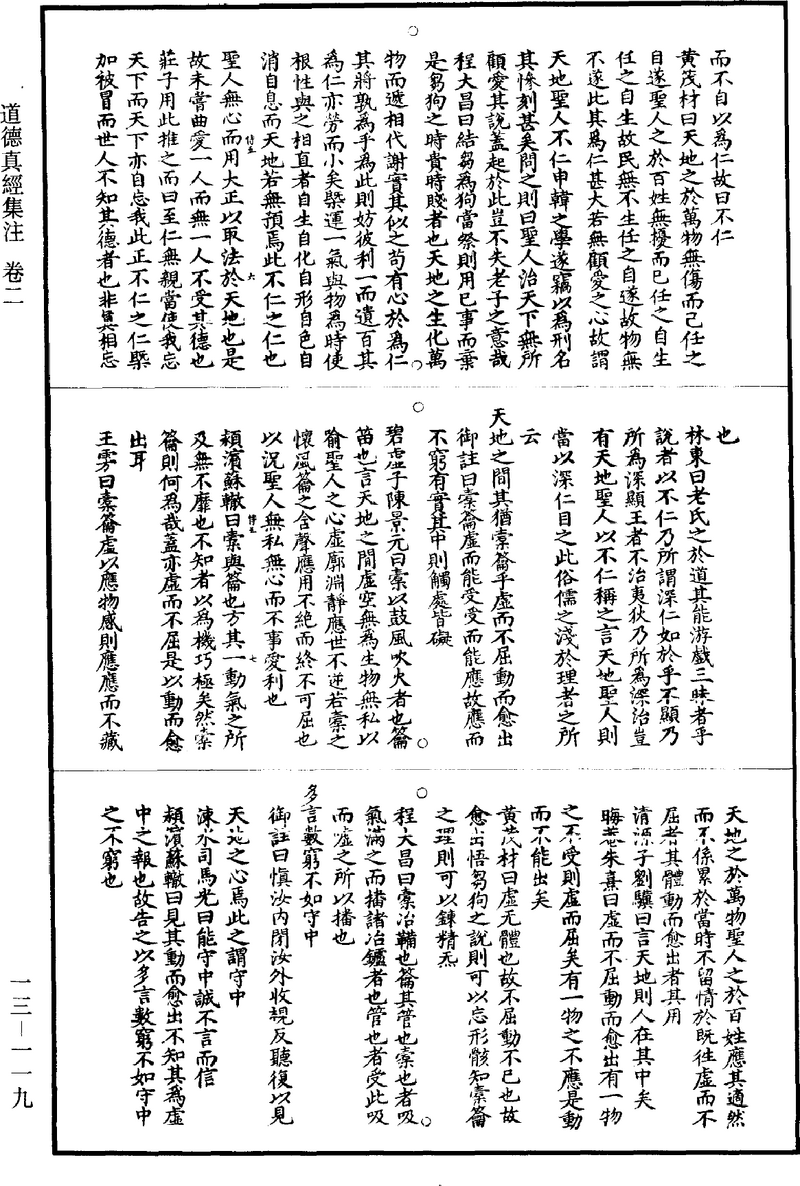 道德真經集注　卷二
而不自以為仁故曰不仁
黃茂材曰天地之於萬物無傷而已任之
自遂聖人之於百姓無擾而已任之自生
任之自生故民無不生任之自遂故物無
不遂此其為仁甚大若無顧愛之心故謂
天地聖人不仁申韓之學遂竊以為刑名
其慘刻甚矣問之則曰聖人治天下無所
顧愛其說蓋起於此豈不失老子之意哉
程大昌曰結芻為狗當祭則用已事而棄
是芻狗之時貴時賤者也天地之生化萬
物而遞相代謝實其似之苟有心於為仁
其將孰為乎為此則妨彼利一而遺百其
為仁亦勞而小矣槩運一氣與物為時使
根性與之相直者自生自化自形自色自
消自息而天地若無預焉此不仁之仁也
聖人無心而用大正以取法於天地也是
故未嘗曲愛一人而無一人不受其德也
莊子用此推之而曰至仁無親當使我忘
天下而天下亦自忘我此正不仁之仁槩
加被冒而世人不知其德者也非真相忘
也
林東曰老氏之於道其能游戲三昧者乎
說者以不仁乃所謂深仁如於乎不顯乃
所為深顯王者不治夷狄乃所為深治豈
有天地聖人以不仁稱之言天地聖人則
當以深仁目之此俗儒之淺於理者之所
云
天地之間其猶橐籥乎虛而不屈動而愈出
御註曰橐籥虛而能受受而能應故應而
不窮有實其中則觸處皆礙
碧虛子陳景元曰橐以鼓風吹火者也籥
笛也言天地之間虛空無為生物無私以
喻聖人之心虛廓淵靜應世不逆若橐之
懷風籥之含聲應用不絕而終不可屈也
以況聖人無私無心而不事愛利也
潁濱蘇轍曰橐與籥也方其一動氣之所
及無不靡也不知者以為機巧極矣然橐
籥則何為哉蓋亦虛而不屈是以動而愈
出耳
王雱曰橐籥虛以應物感則應應而不藏
天地之於萬物聖人之於百姓應其適然
而不係累於當時不留情於既往虛而不
屈者其體動而愈出者其用
清源子劉驥曰言天地則人在其中矣
晦菴朱熹曰虛而不屈動而愈出有一物
之不受則虛而屈矣有一物之不應是動
而不能出矣
黃茂材曰虛无體也故不屈動不已也故
愈出悟芻狗之說則可以忘形骸知橐籥
之理則可以鍊精炁
程大昌曰橐冶鞴也籥其管也橐也者吸
氣滿之而播諸冶鑪者也管也者受此吸
而噓之所以播也
多言數窮不如守中
御註曰慎汝內閉汝外收視反聽復以見
天地之心焉此之謂守中
涑水司馬光曰能守中誠不言而信
潁濱蘇轍曰見其動而愈出不知其為虛
中之報也故告之以多言數窮不如守中
之不窮也
一三—一一九